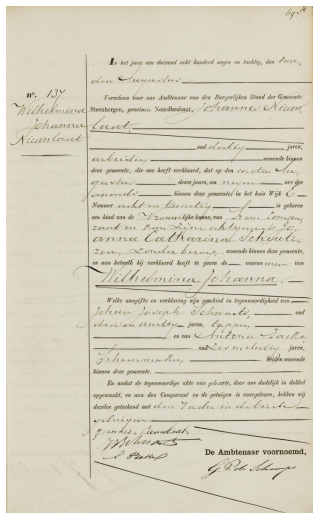 No. 137
Wilhelmina
Johanna
Nieuwlaat
In het jaar een duizend acht honderd negen en tachtig, den twee
den Augustus
Verscheen voor ons Ambtenaar van den Burgerlijken Stand der Gemeente
Steenbergen, provincie Noordbrabant, Johannes Nieuw
laat
oud dertig jaren,
arbeider wonende binnen
deze gemeente, die ons heeft verklaard, dat op den eersten Au
gustus dezes jaars, om negen ure des
avonds binnen deze gemeente in het huis Wijk C
Nummer acht en twintig is geboren
een kind van de Vrouwelijke kunne, van hem Compa
rant en van zijne echtgenoote Jo
anna Catharina
zonder beroep, wonende binnen deze gemeente,
en aan hetwelk hij verklaard heeft te geven de voornamen van
Wilhelmina Johanna.
Welke aangifte en verklaring zijn geschied in tegenwoordigheid van
Johan Joseph oud
jaren, tapper,
en van Antonie
oud jaren,
Schoenmaker, beiden wonende
binnen deze gemeente.
En nadat de tegenwoordige akte van geboorte, door ons dadelijk in dubbel
opgemaakt, en aan den Comparant en de getuigen is voorgelezen, hebben wij
dezelve geteekend met den Vader en de beide
getuigen
De Ambtenaar voornoemd,